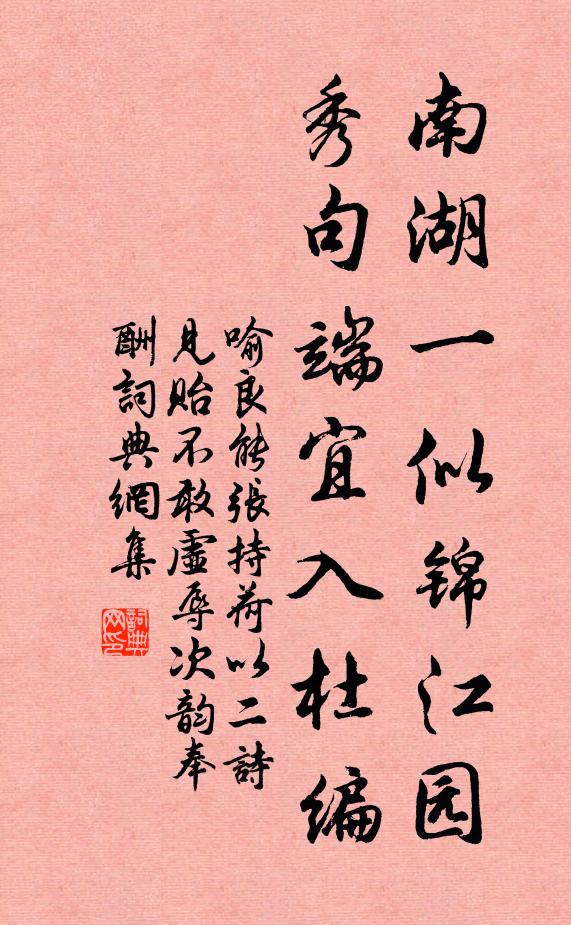 南湖一似锦江园
秀句端宜入杜编
喻良能張持荷以二詩
見貽不敢虛辱次韵奉
酬詞典網集
詞典网印